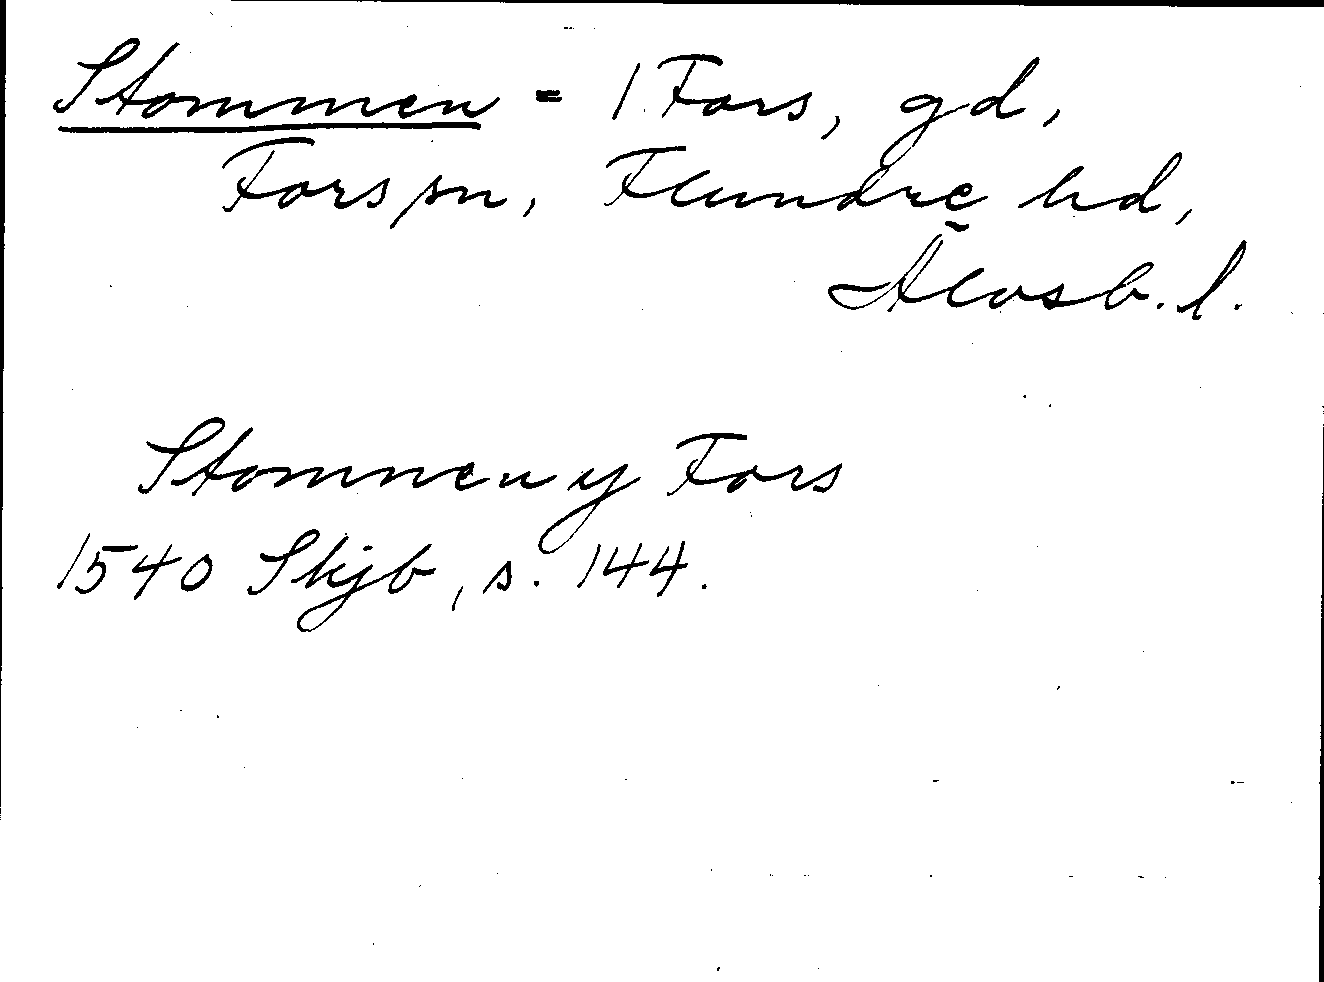 Stommen = 1 Fors, gd,
Fors sn, Flundre hd,
Älvsb. l.
Stomnen y Fors
1540 Skjb, s. 144.